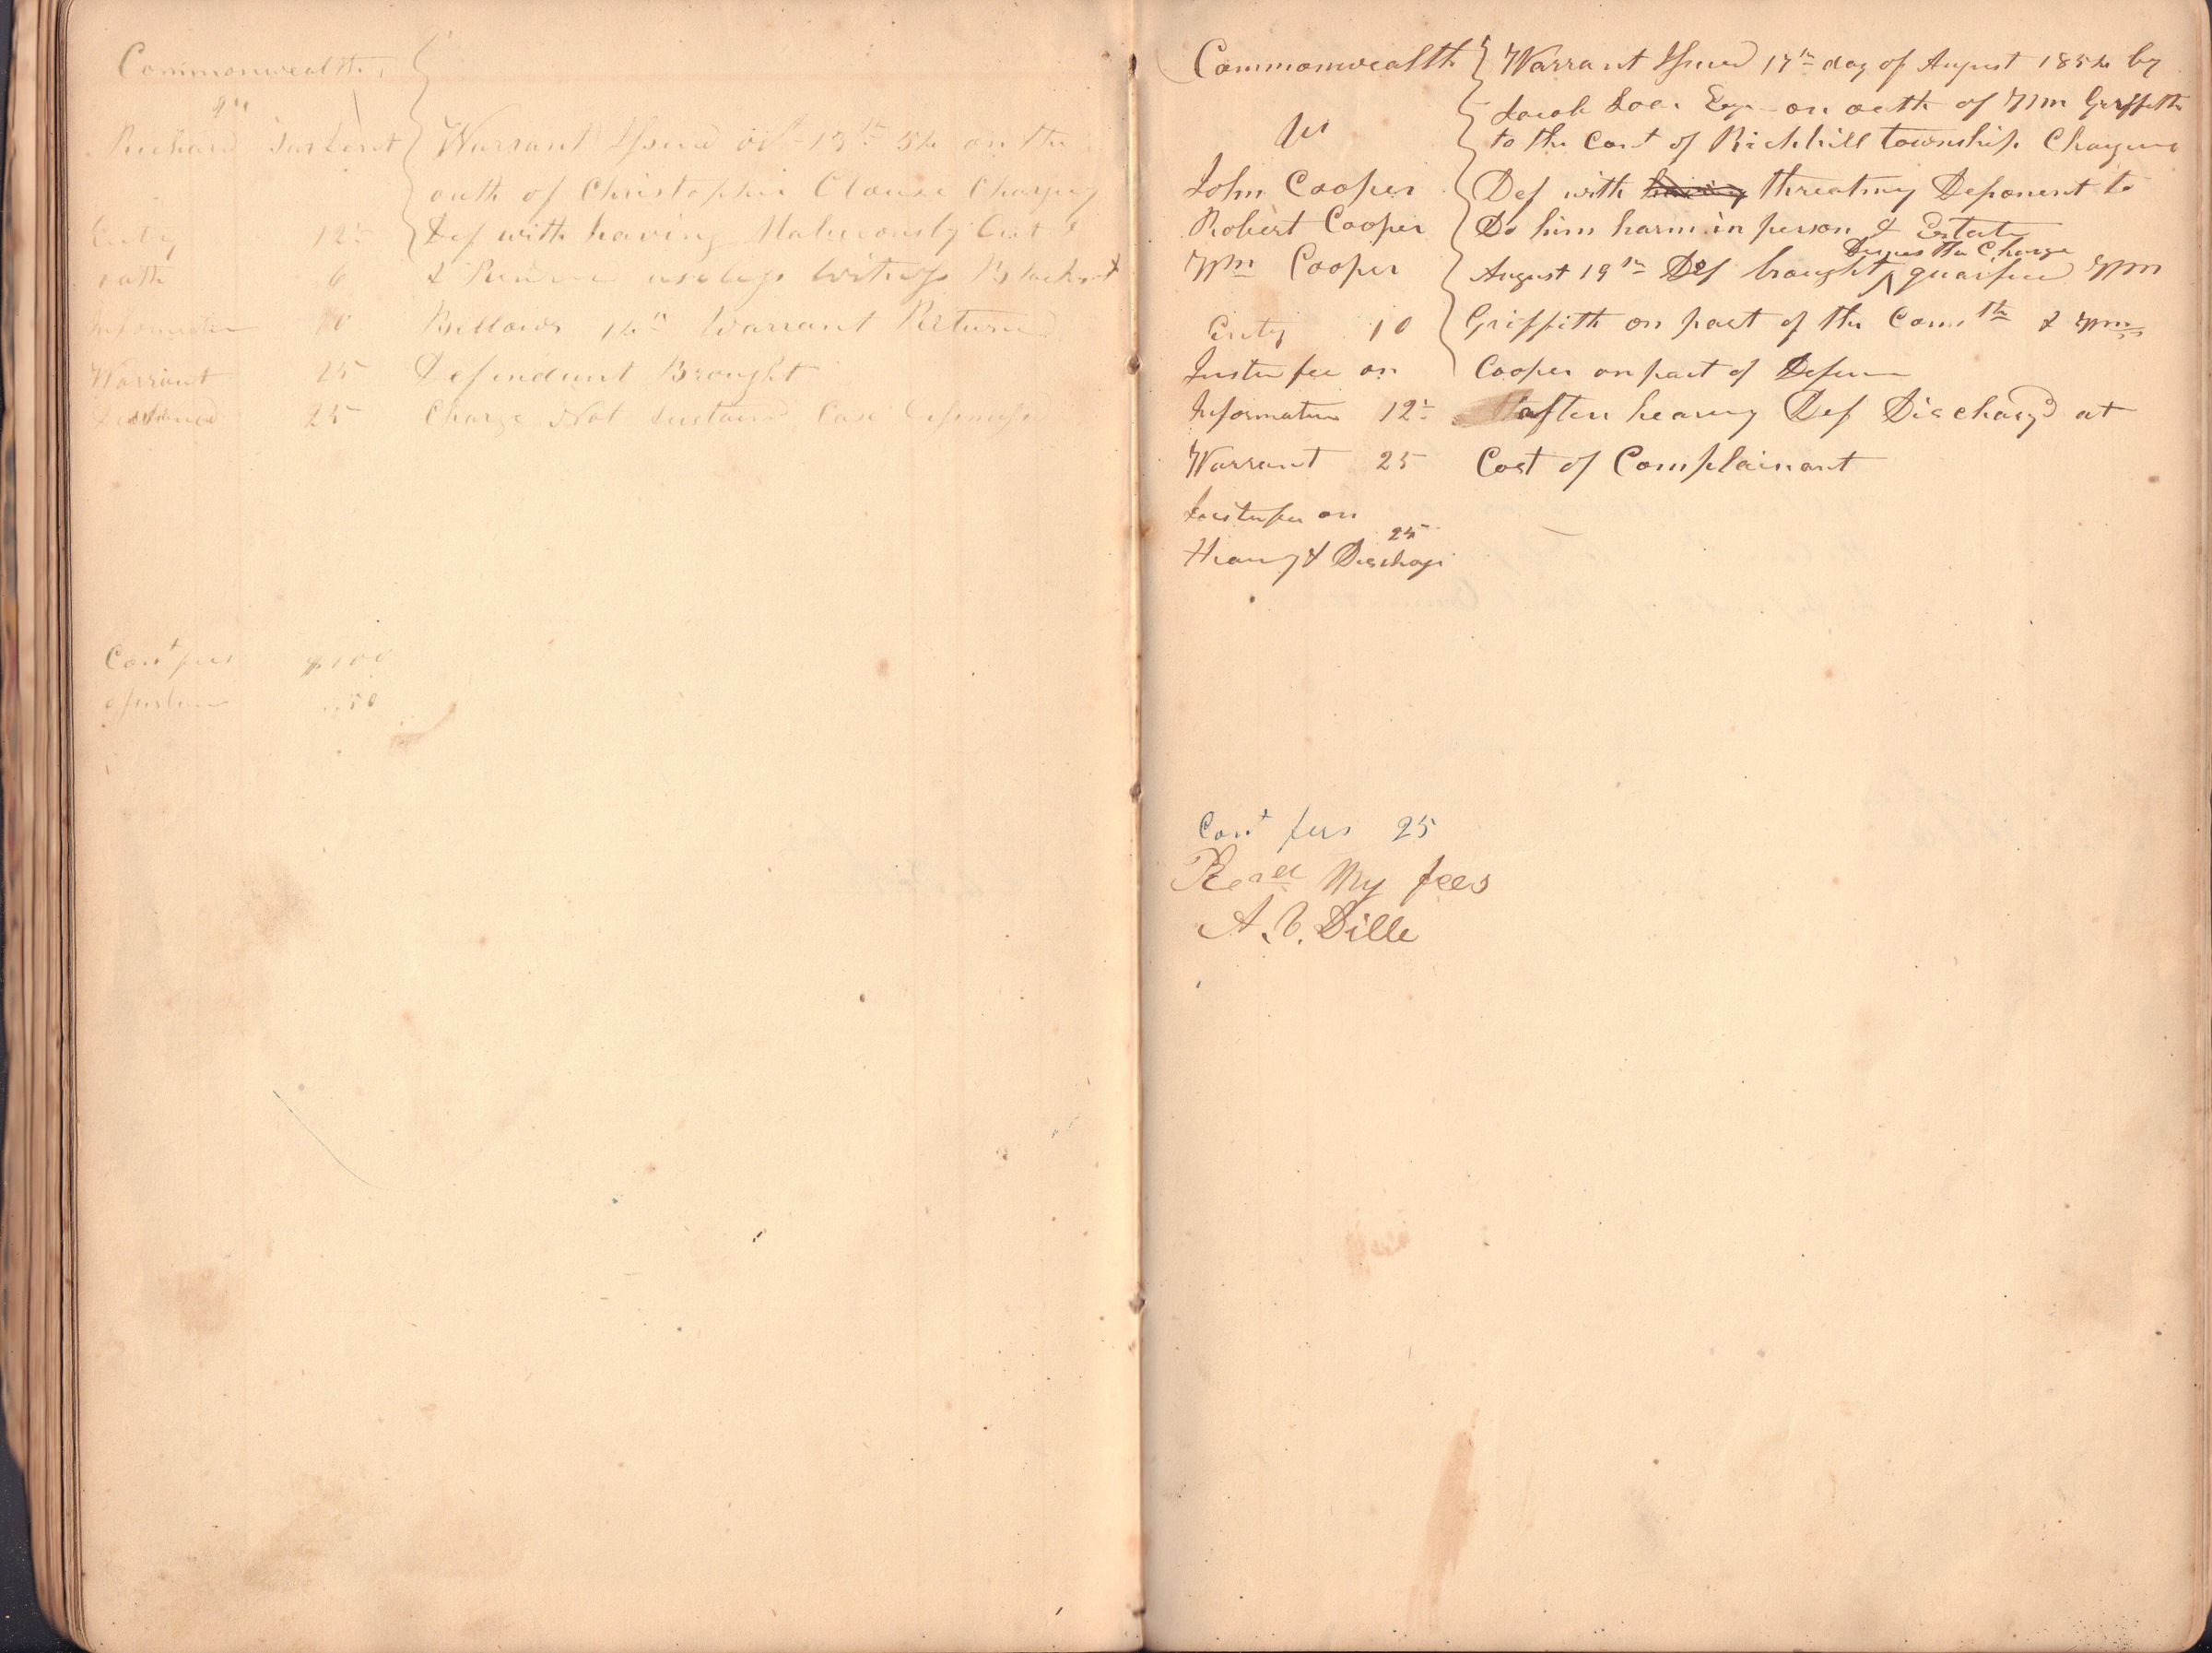 Commonwealth
vs
Richard Sarkent
Warrant Issued oct 13th 54 on the
oath of Christopher Clouse Charging
Def with having Maliciously Cut &
& Render useless Witness Blacksmt
Bellows 14th Warrant Returned
Defendant Brought
Charge Not Sustaind Case Dismiss
Enty 12½
oath 6
Information 10
Warrant 25
25
Cont fees $100
Justice .50
Commonwealth
vs
John Cooper
Robert Cooper
Wm Cooper
Enty 10
Justice fee on
Information 12½
Warrant 25
Justice fee on
25
Hearing & Discharge
Warrant Issued 17th day of August 1854 by
Jacob Loar Esqr on oath of Wm Griffith
to the Const of Richhill township Charging
Def with having threatning Deponent to
Do him harm in person & Estate
Denies the Charge
August 19th Def brought ^ Wm
Griffith on part of the Comth & Wm
Cooper on part of Defense
after hearing Def Dischargd at
Cost of Complainant
Cont fees 25
Recd My fees
A. V. Dille